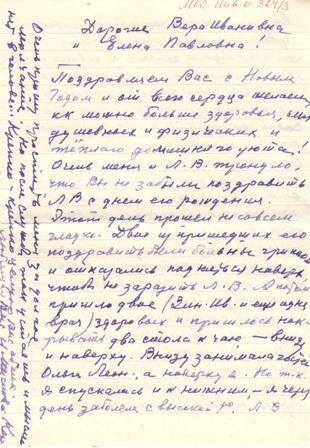 МКЛ. Инв. № 324/3
Дорогие Вера Ивановна
и Елена Павловна!
Поздравляем Вас с Новым
Годом и от всего сердца желаем
как можно больше здоровья, сил
душевных и физических и
тёплого домашнего уюта!
Очень меня и Л.В. тронуло,
что Вы не забыли поздравить
Л.В с днём его рождения.
Этот день прошел не совсем
гладко. Двое из пришедших его
поздравить были больны гриппом
и отказались подняться наверх,
чтобы не заразить Л.В. А потом
пришло двое (Зин. Ив. и еще одна
врач) здоровых и пришлось нак-
рывать два стола к чаю — внизу
и наверху. Внизу занимала гостей
Ольга Леон., а наверху я. Но т.к
я спускалась и к нижним, — я через
день заболела с высокой to, Л.В
Очень прошу простить меня за долгое
молчание. Но после
Крепко-крепко